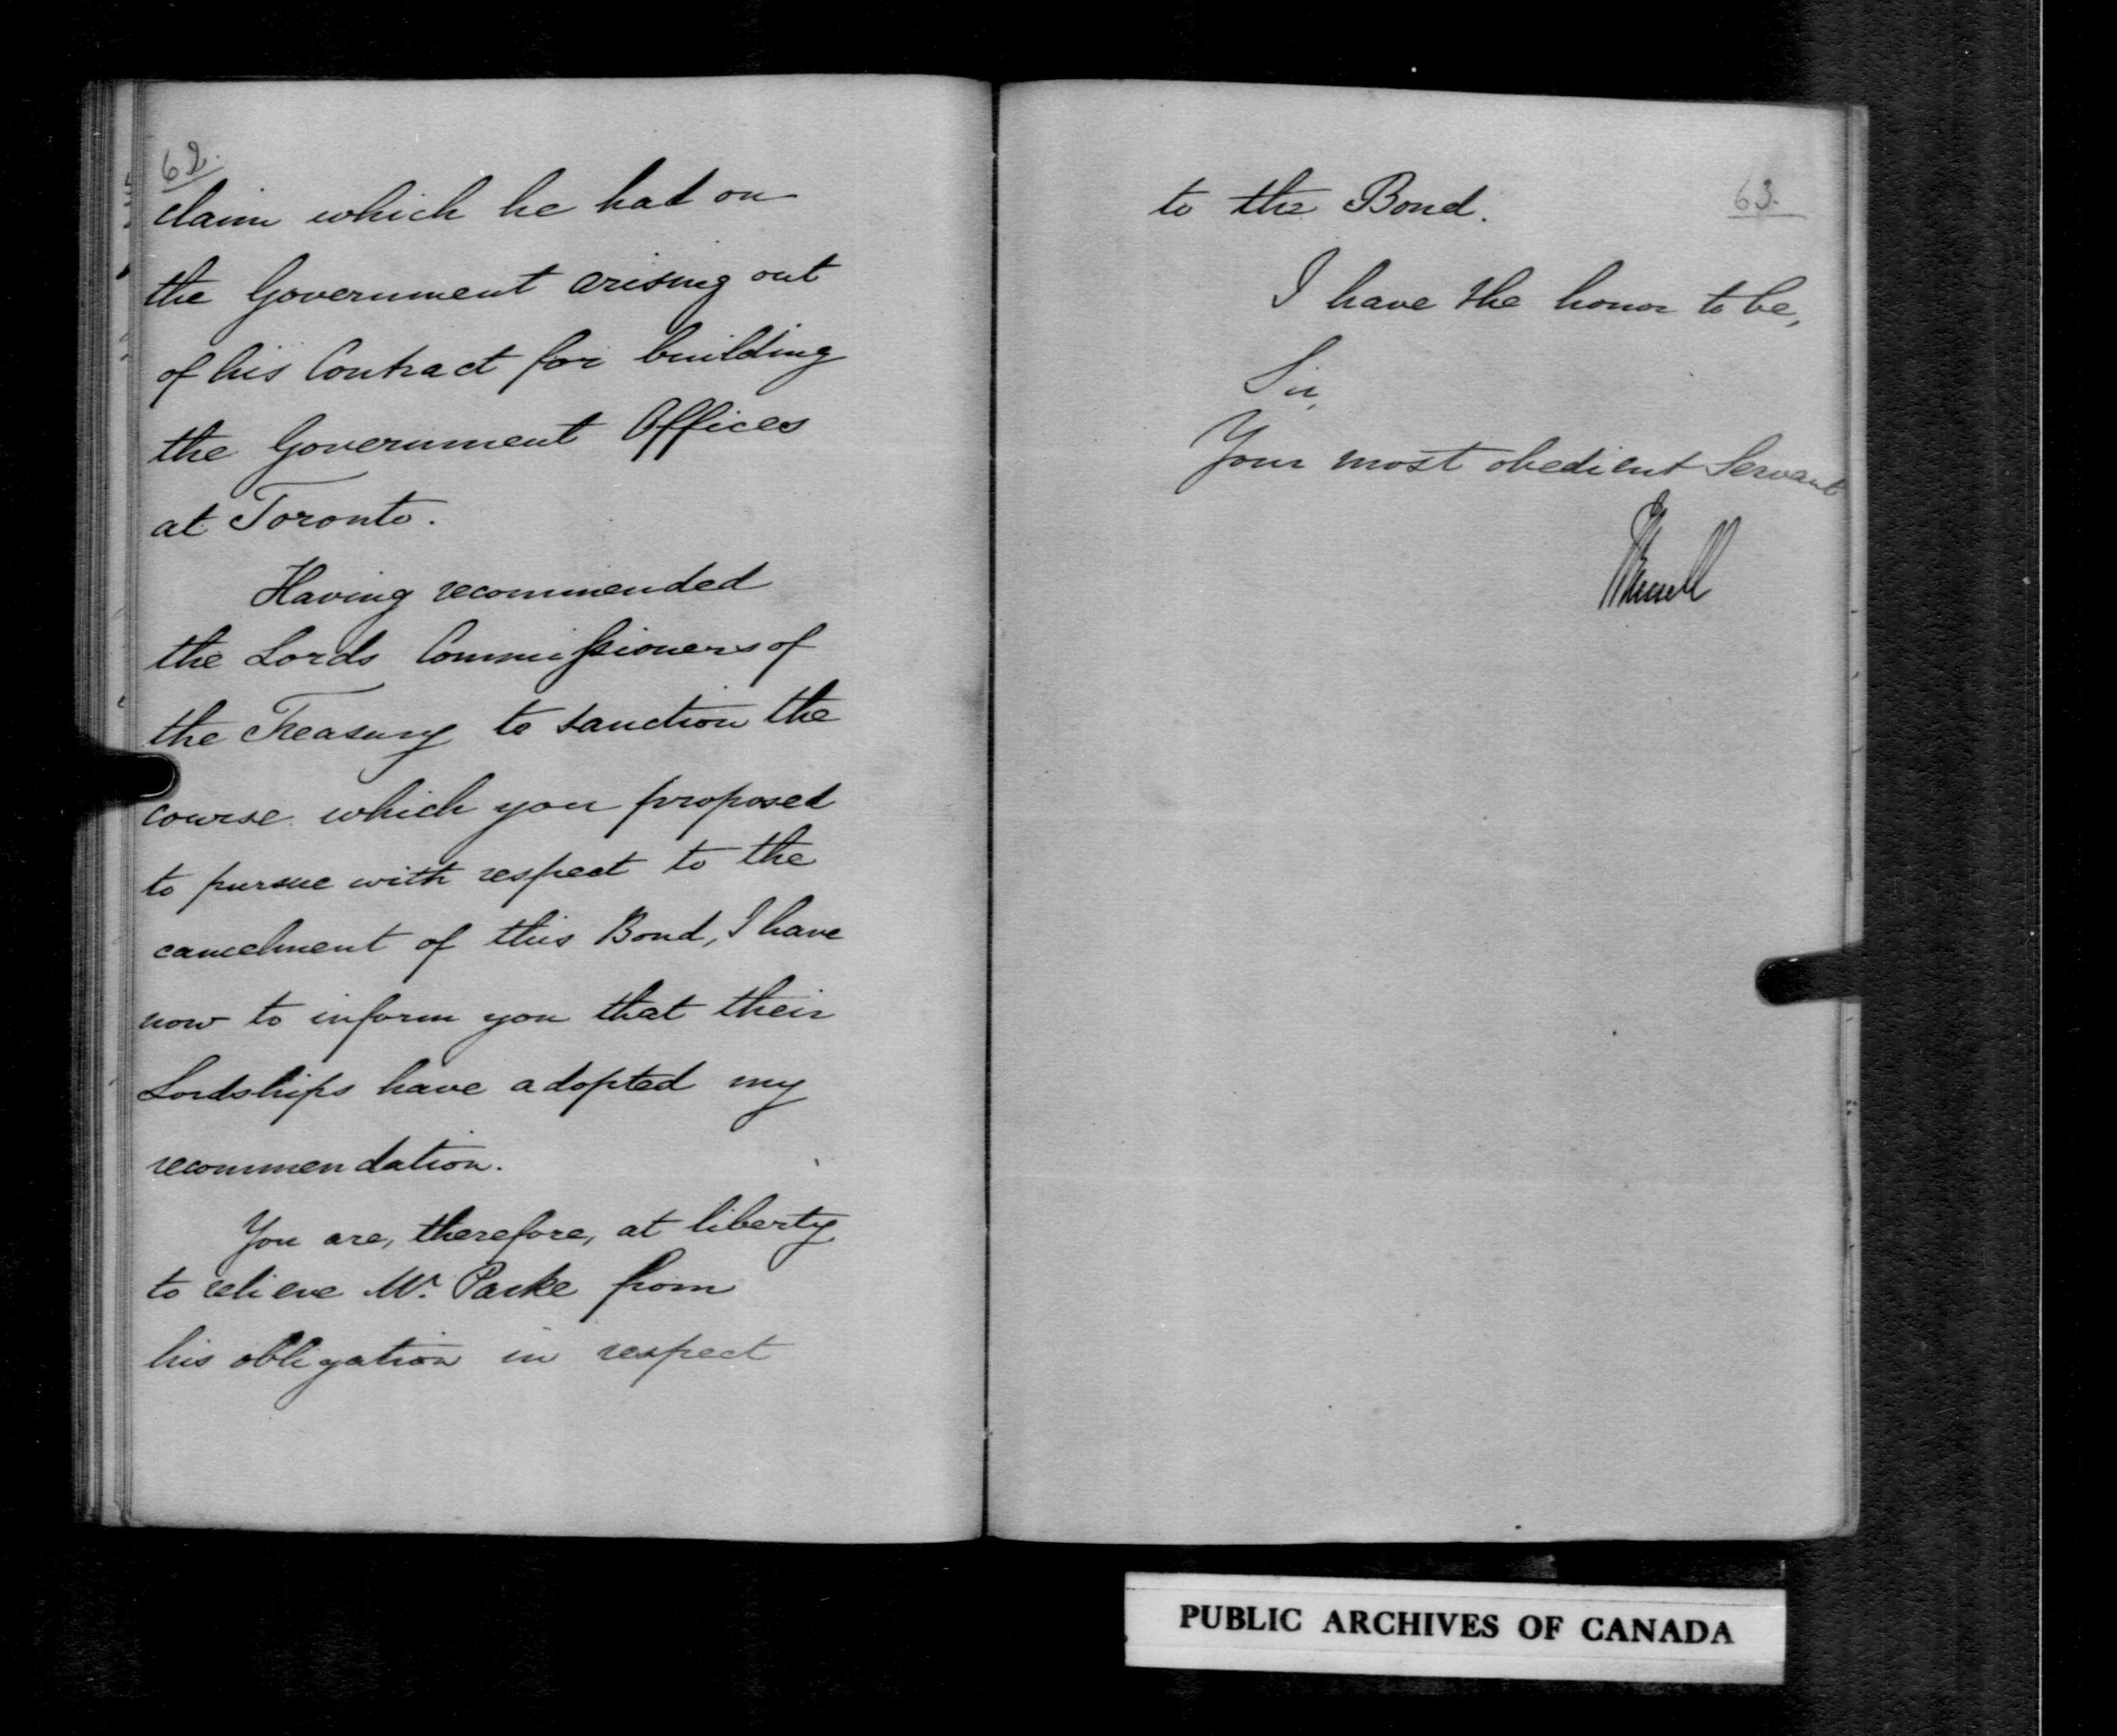 62.
claim which he had on
the Government arising out
of his Contract for building
the Government Offices
at Toronto.
Having recommended
the Lords Commissioners of
the Treasury to sanction the
course which you proposed
to pursue with respect to the
cancelment of this Bond, I have
now to inform you that their
Lordships have adopted my
recommendation.
You are, therefore, at liberty
to relieve Mr. Parke from
his obligation in respect
63.
to the Bond.
I have the honor to be,
Sir,
Your most obedient Servant
PUBLIC ARCHIVES OF CANADA